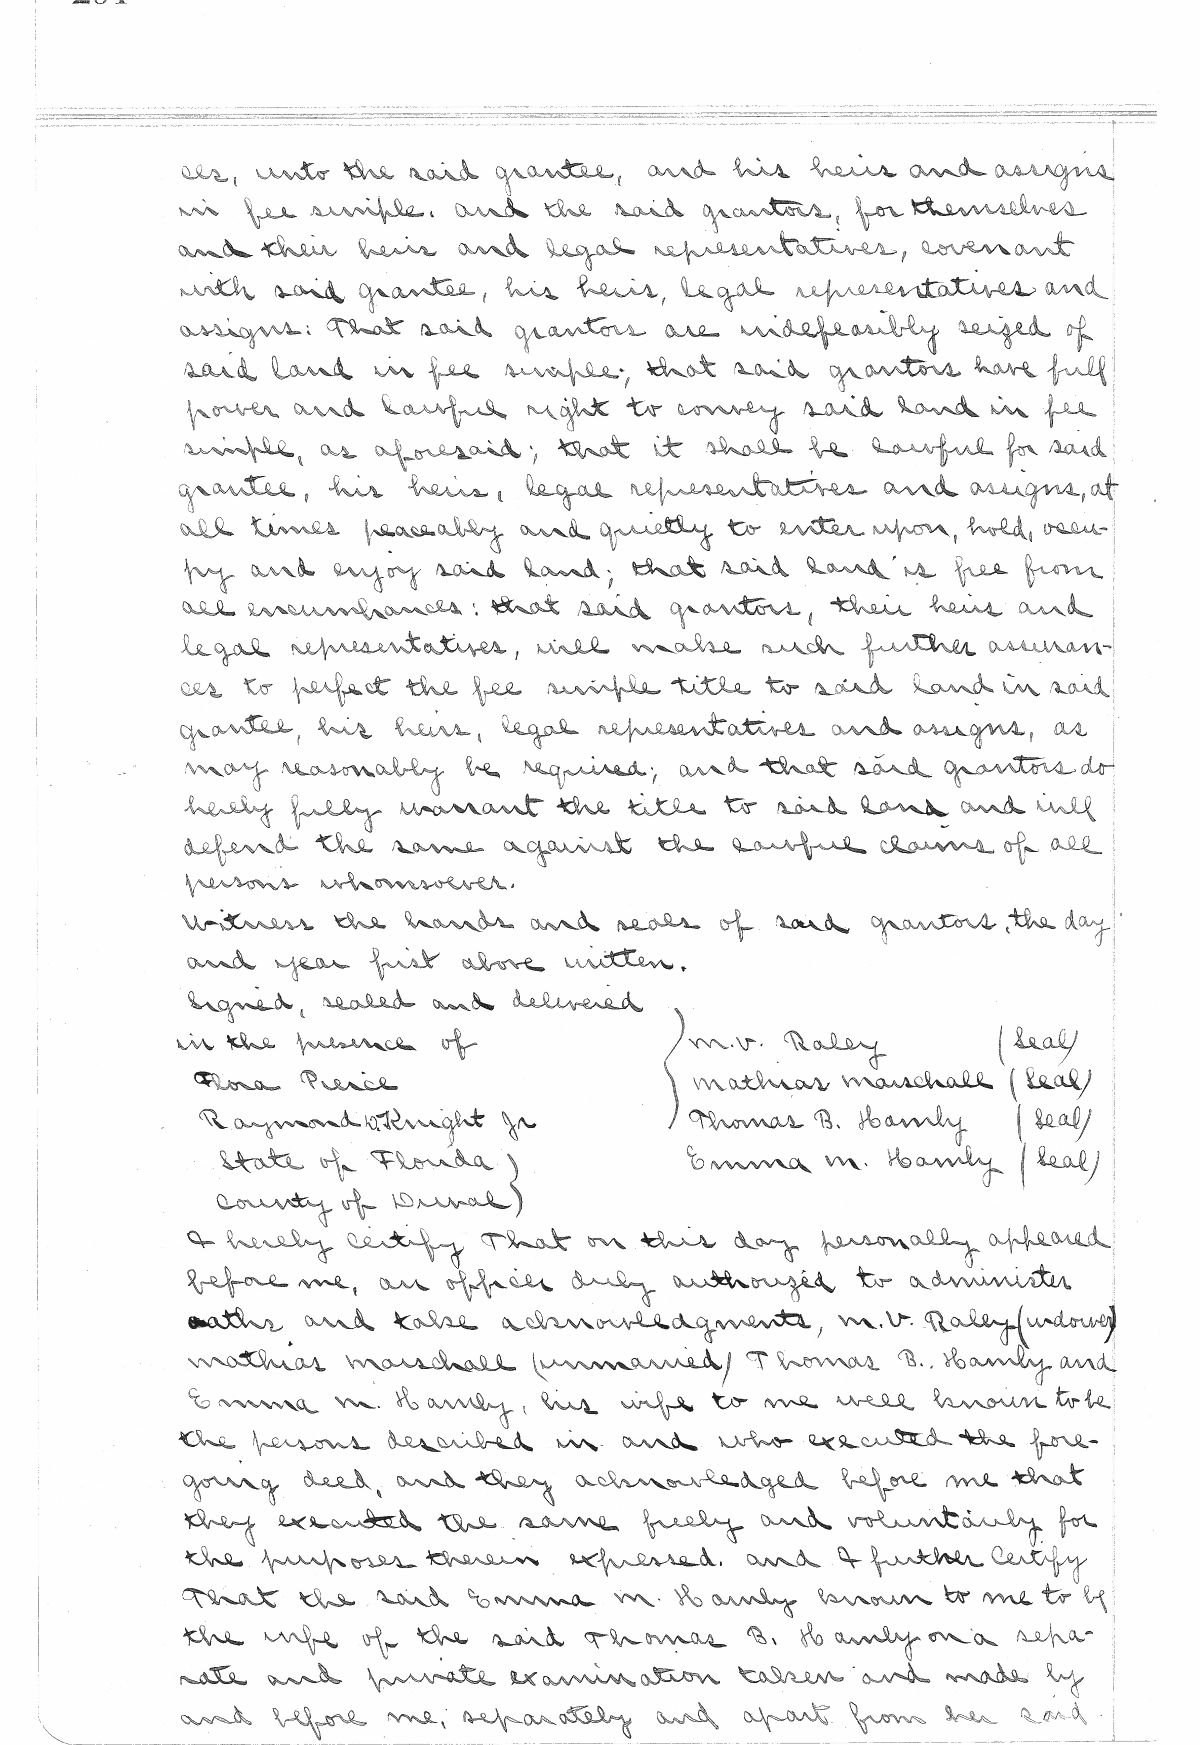 ces, unto the said grantee, and his heirs and assigns
in fee simple. and the said grantors, for themselves
and their heirs and legal representatives, covenant
with said grantee, his heirs, legal representatives and
assigns: That said grantors are indefeasibly seized of
said land in fee simple; that said grantors have full
power and lawful right to convey said land in fee
simple, as aforesaid; that it shall be lawful for said
grantee, his heirs, legal representatives and assigns, at
all times peaceably and quietly to enter upon, hold, occu-
py and enjoy said land; that said land is free from
all encumbrances: that said grantors, their heirs and
legal representatives, will make such further assuran-
ces to perfect the fee simple title to said land in said
grantee, his heirs, legal representatives and assigns, as
may reasonably be required; and that said grantors do
hereby fully warrant the title to said land and will
defend the same against the lawful claims of all
persons whomsoever.
Witness the hands and seals of said grantors, the day
and year first above written.
Signed, sealed and delivered
in the presence of ) M.V. Raley (Seal)
Flora Pierce ) Mathias Marschall (Seal)
Raymond D. Knight Jr ) Thomas B. Hamly (Seal)
State of Florida ) Emma M. Hamly (Seal)
County of Duval )
I hereby Certify That on this day personally appeared
before me, an officer duly authorized to administer
oaths and take acknowledgments, M.V. Raley (widower)
Mathias Marschall (unmarried) Thomas B. Hamly and
Emma M. Hamly, his wife to me well known to be
the persons described in and who executed the fore-
going deed, and they acknowledged before me that
they executed the same freely and voluntarily for
the purposes therein expressed. and I further Certify
That the said Emma M. Hamly known to me to be
the wife of the said Thomas B. Hamly on a sepa-
rate and private examination taken and made by
and before me, separately and apart from her said